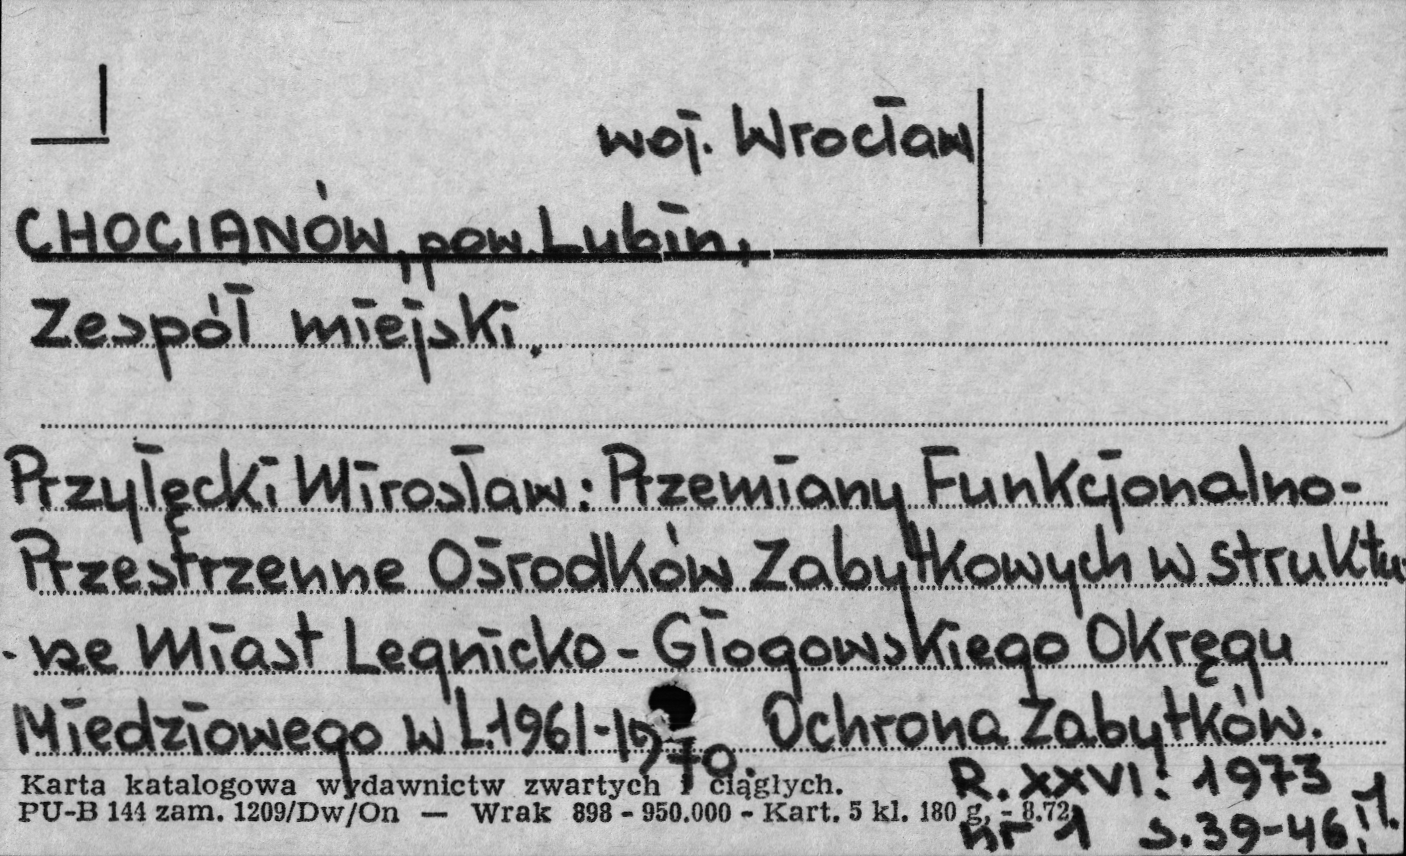 woj. Wrocław
CHOCIANÓW, pow. Lubin,
Zespół miejski.
Przyłęcki Mirosław: Przemiany Funkcjonalno-
Przestrzenne Ośrodków Zabytkowych w struktu-
rze Miast Legnicko-Głogowskiego Okręgu
Miedziowego w L. 1961-1970. Ochrona Zabytków.
R. XXVI: 1973
nr 1 s. 39-46, il.
Karta katalogowa wydawnictw zwartych i ciągłych.
PU-B 144 zam. 1209/Dw/On — Wrak 898 - 950.000 - Kart. 5 kl. 180 g. - 8.72